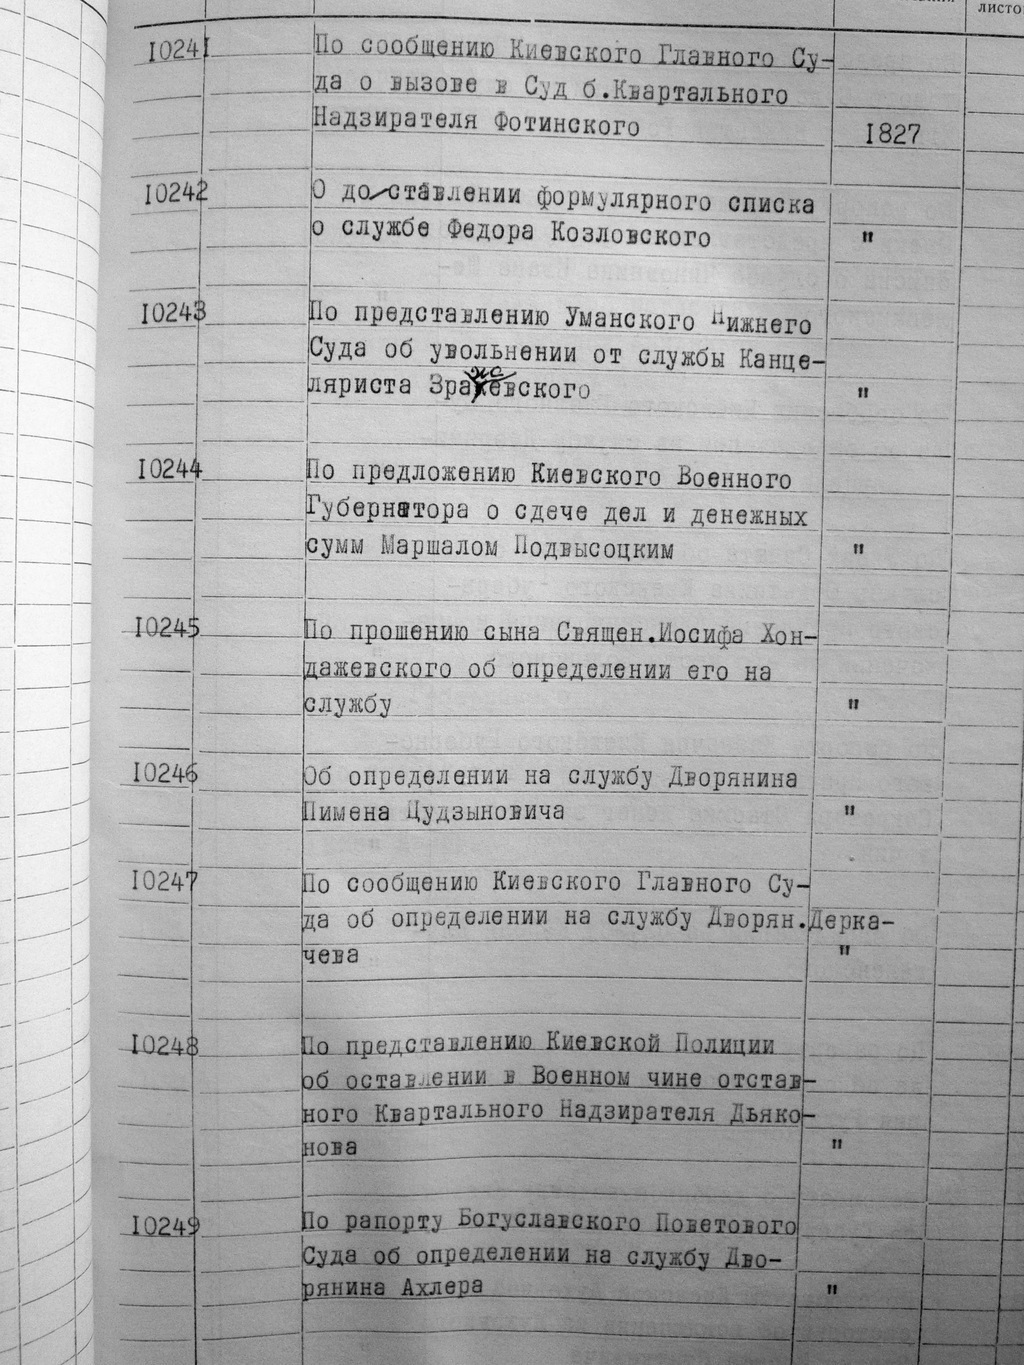 листов
10241 По сообщению Киевского Главного Су-
да о вызове в Суд б.Квартального
Надзирателя Фотинского 1827
10242 О до ставлении формулярного списка
о службе Федора Козловского "
10243 По представлению Уманского Нижнего
Суда об увольнении от службы Канце-
ляриста Зражевского "
10244 По предложению Киевского Военного
Губернатора о сдече дел и денежных
сумм Маршалом Подвысоцким "
10245 По прошению сына Священ.Иосифа Хон-
дажевского об определении его на
службу "
10246 Об определении на службу Дворянина
Пимена Цудзыновича "
10247 По сообщению Киевского Главного Су-
да об определении на службу Дворян.Дерка-
чева "
10248 По представлению Киевской Полиции
об оставлении в Военном чине отстав-
ного Квартального Надзирателя Дьяко-
нова "
10249 По рапорту Богуславского Поветового
Суда об определении на службу Дво-
рянина Ахлера "